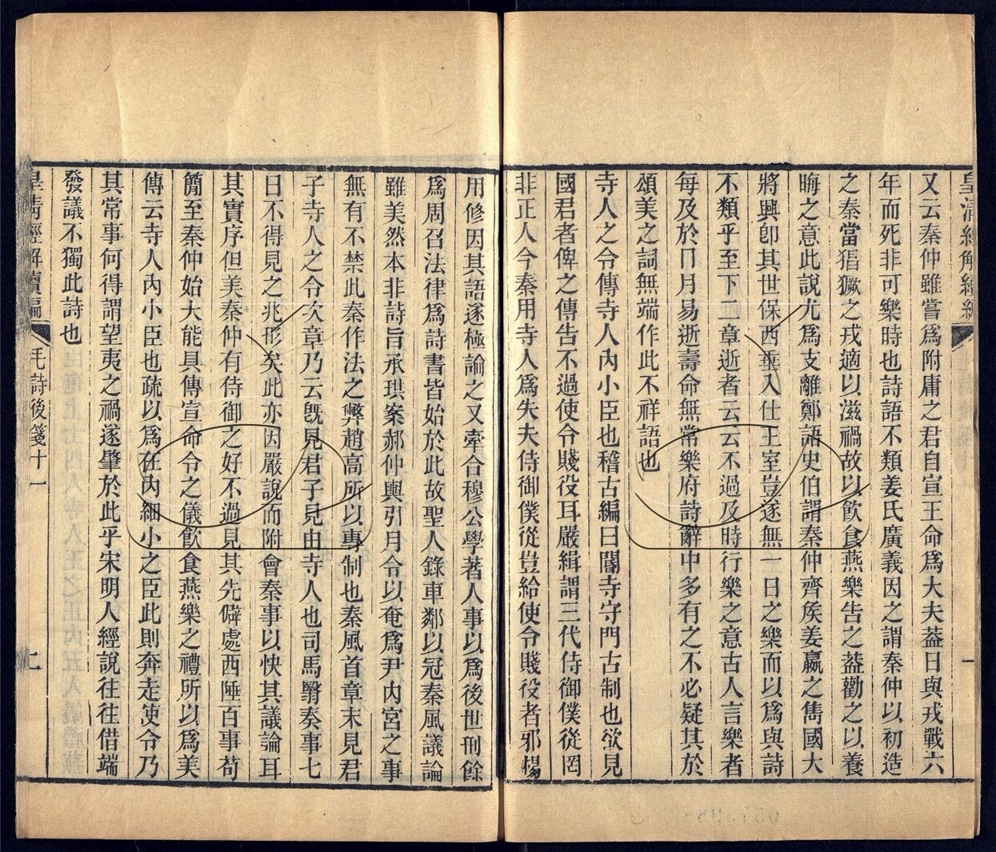 皇清經解續編
又云秦仲雖嘗爲附庸之君自宣王命爲大夫葢日與戎戰六
年而死非可樂時也詩語不類姜氏廣義因之謂秦仲以初造
之秦當猖獗之戎適以滋禍故以飮食燕樂告之葢勸之以養
晦之意此說尤爲支離鄭語史伯謂秦仲齊侯姜嬴之雋國大
將興卽其世保西垂入仕王室豈遂無一日之樂而以爲與詩
不類乎至下二章逝者云云不過及時行樂之意古人言樂者
每及於日月易逝壽命無常樂府詩辭中多有之不必疑其於
頌美之詞無端作此不祥語也
寺人之令傳寺人內小臣也稽古編曰閽寺守門古制也欲見
國君者俾之傳告不過使令賤役耳嚴緝謂三代侍御僕從罔
非正人今秦用寺人爲失夫侍御僕從豈給使令賤役者邪楊
用修因其語遂極論之又牽合穆公學著人事以爲後世刑餘
爲周召法律爲詩書皆始於此故聖人錄車鄰以冠秦風議論
雖美然本非詩旨承珙案郝仲輿引月令以奄爲尹內宮之事
無有不禁此秦作法之弊趙高所以專制也秦風首章未見君
子寺人之令次章乃云旣見君子見由寺人也司馬翳奏事七
日不得見之兆形矣此亦因嚴說而附會秦事以快其議論耳
其實序但美秦仲有侍御之好不過見其先僻處西陲百事苟
簡至秦仲始大能具傳宣命令之儀飮食燕樂之禮所以爲美
傳云寺人內小臣也疏以爲在內細小之臣此則奔走使令乃
其常事何得謂望夷之禍遂肇於此乎宋明人經說往往借端
發議不獨此詩也
皇清經解續編 毛詩後箋十一